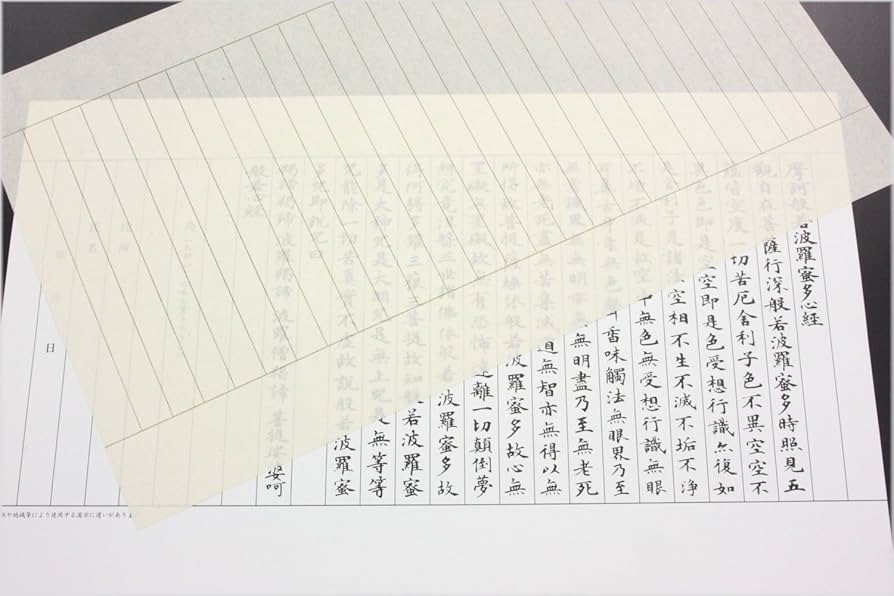 摩訶般若波羅蜜多心経
觀自在菩薩行深般若波羅蜜多時照見五
蘊皆空度一切苦厄舍利子色不異空空不
異色色即是空空即是色受想行識亦復如
是舍利子是諸法空相不生不滅不垢不淨
不增不減是故空中無色無受想行識無眼
耳鼻舌身意無色聲香味觸法無眼界乃至
無意識界無無明亦無無明盡乃至無老死
亦無老死盡無苦集滅道無智亦無得以無
所得故菩提薩埵依般若波羅蜜多故心無
罣礙無罣礙故無有恐怖遠離一切顛倒夢
想究竟涅槃三世諸佛依般若波羅蜜多故
得阿耨多羅三藐三菩提故知般若波羅蜜
多是大神呪是大明呪是無上呪是無等等
呪能除一切苦真實不虚故說般若波羅蜜
多呪即說呪曰
羯諦羯諦波羅羯諦波羅僧羯諦菩提娑婆呵
般若心経
為
住所
氏名
年 月 日
や地域等により使用する漢字に違いがありま